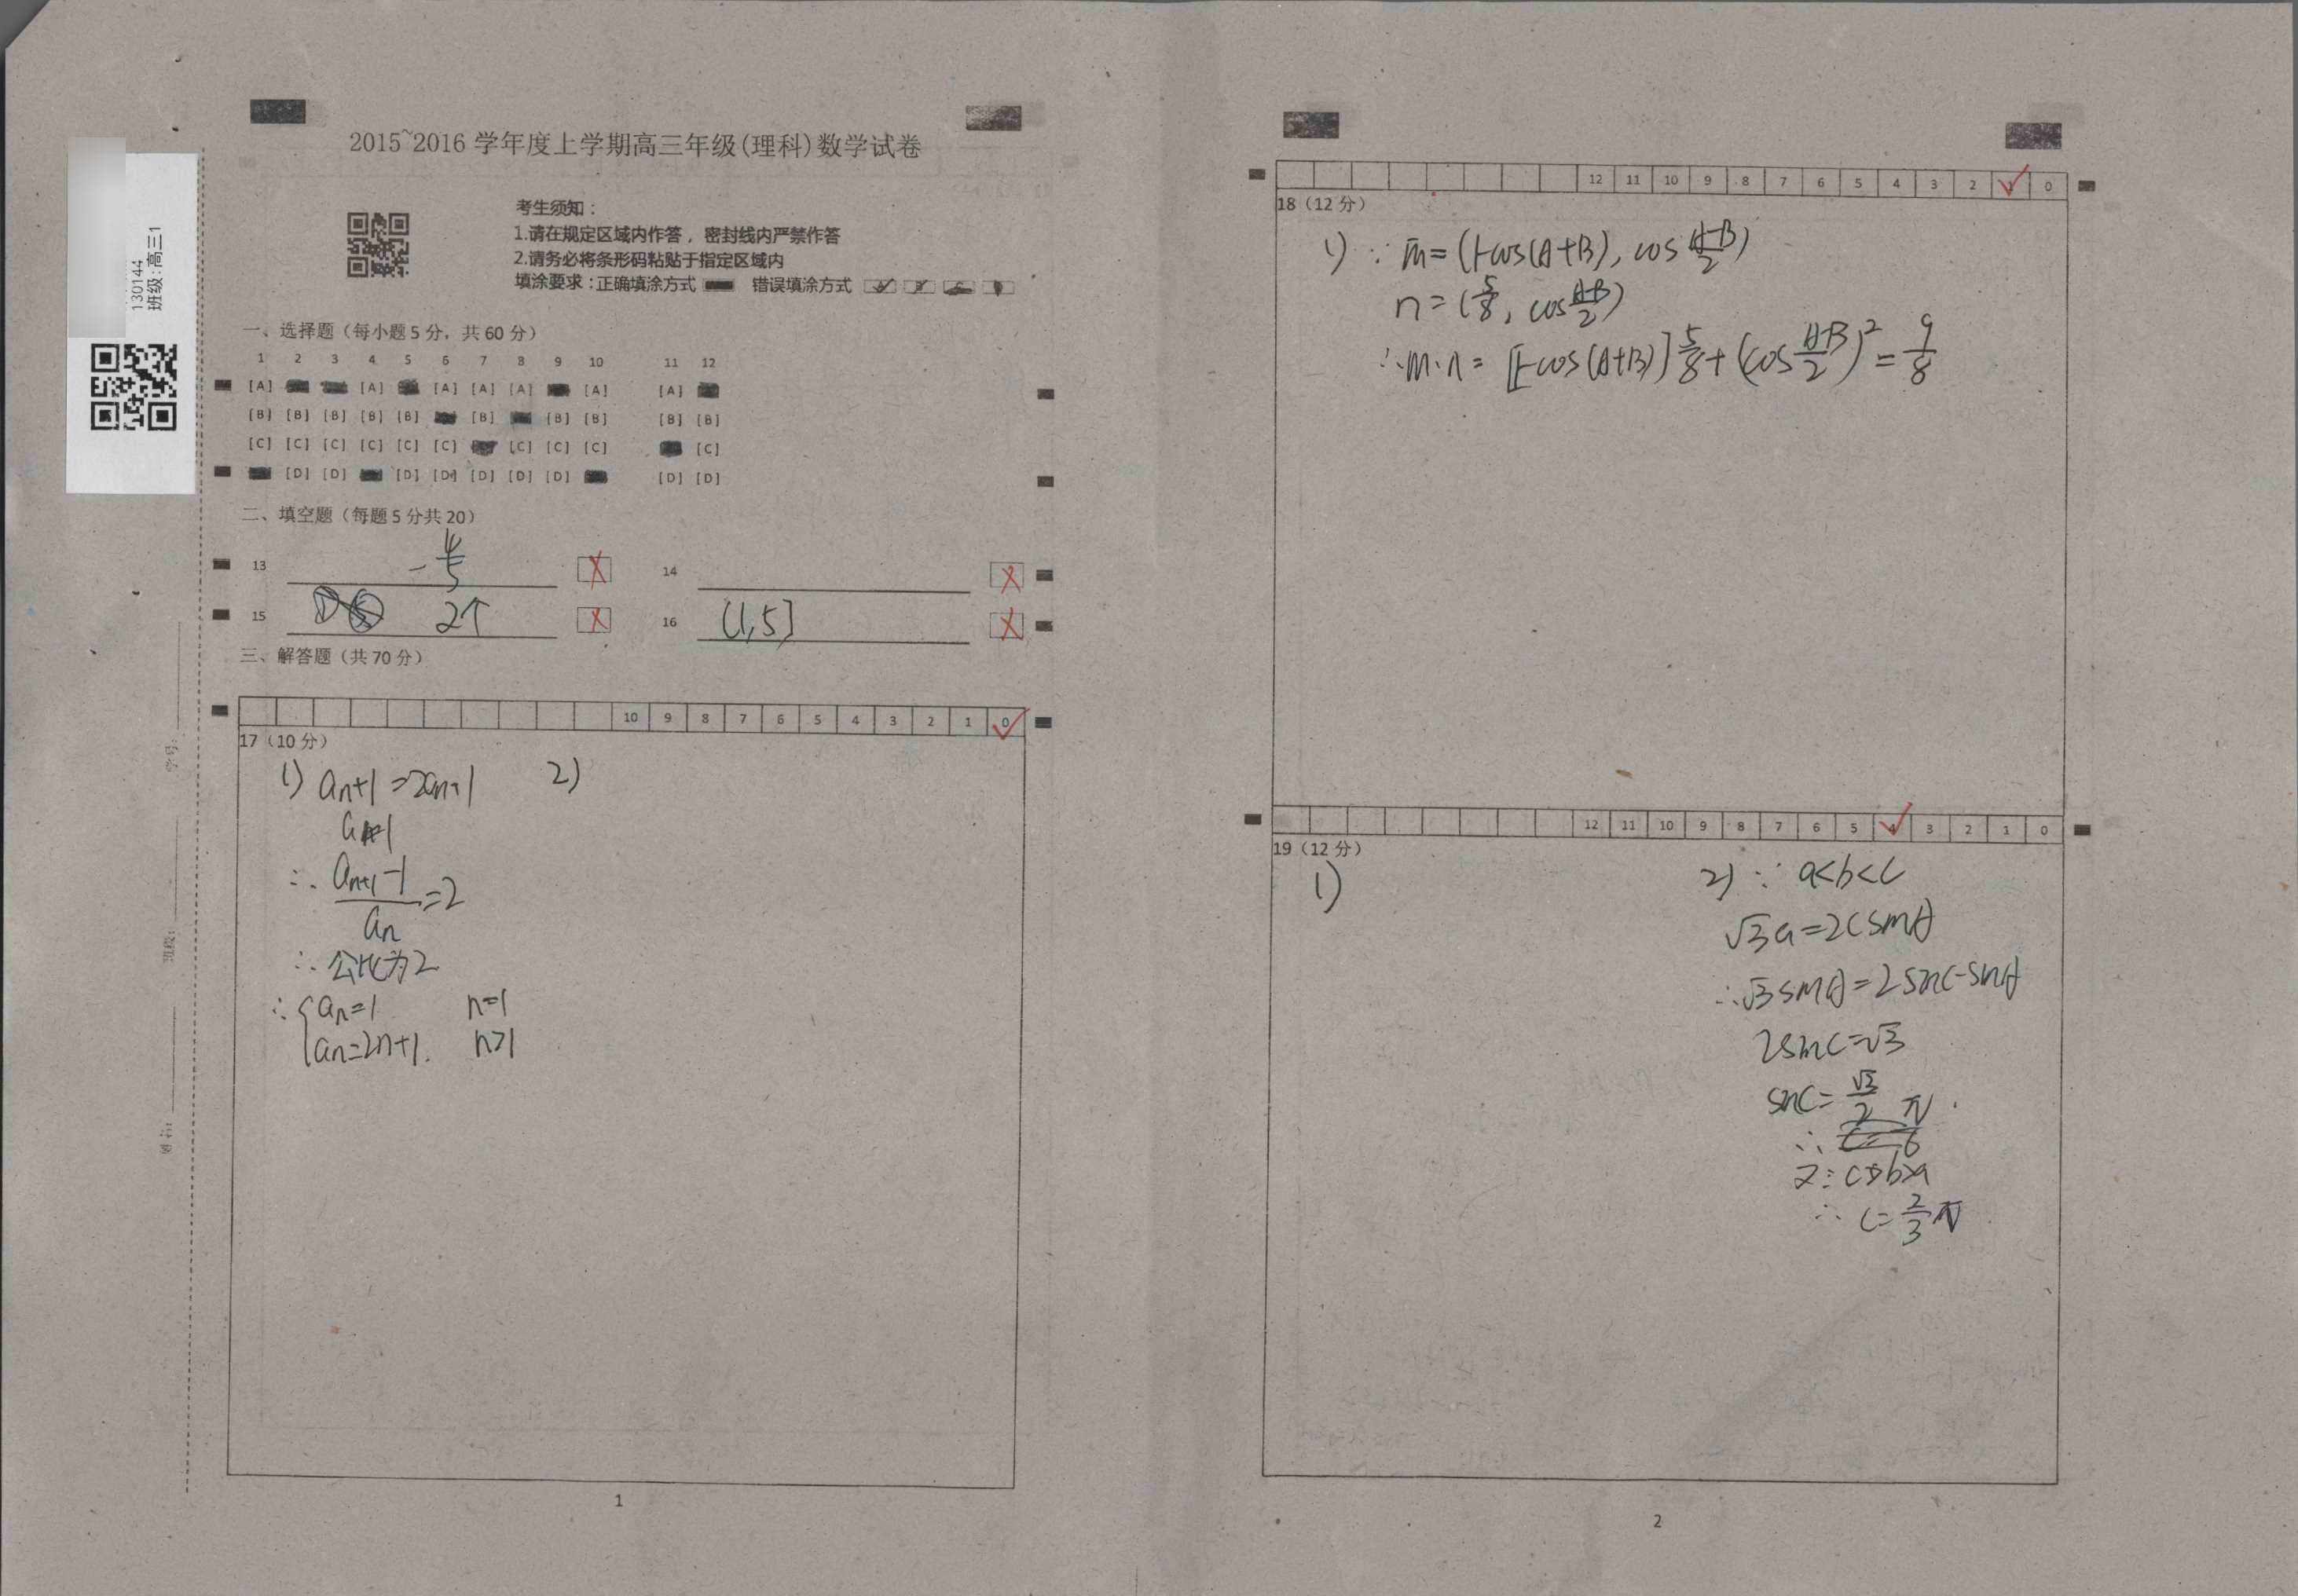 2015~2016 学年度上学期高三年级(理科)数学试卷
130144
班级:高三1
考生须知：
1.请在规定区域内作答，密封线内严禁作答
2.请务必将条形码粘贴于指定区域内
填涂要求：正确填涂方式 错误填涂方式
一、选择题（每小题5分，共60分）
1 2 3 4 5 6 7 8 9 10 11 12
[A] [A] [A] [A] [A] [A] [A]
[B] [B] [B] [B] [B] [B] [B] [B] [B] [B]
[C] [C] [C] [C] [C] [C] [C] [C] [C] [C]
[D] [D] [D] [D] [D] [D] [D] [D] [D]
二、填空题（每题5分共20）
13 -4/5
14
15 2个
16 (1,5]
三、解答题（共70分）
10 9 8 7 6 5 4 3 2 1 0
17（10分）
1) an+1=2an+1 2)
∴ (an+1-1)/an=2
∴ 公比为2
∴ { an=1 n=1
an=2n+1. n>1
学号:
班级:
姓名:
1
12 11 10 9 8 7 6 5 4 3 2 1 0
18（12分）
1) ∵ m=(1-cos(A+B), cos (A-B)/2)
n=(5/8, cos (A-B)/2)
∴m·n= [1-cos(A+B)] 5/8+(cos (A-B)/2)²=9/8
12 11 10 9 8 7 6 5 4 3 2 1 0
19（12分）
1)
2) ∵ a<b<c
√3a=2csinA
∴√3sinA=2sinC·sinA
2sinC=√3
sinC=√3/2
又∵c>b>a
∴ C=2/3π
2